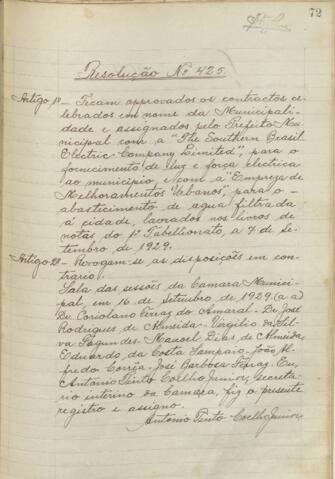 72
Resolução Nº 425.
Artigo 1º - Ficam approvados os contractos ce-
lebrados em nome da Municipali-
dade e assignados pelo Prefeito Mu-
nicipal com a "The Southern Brasil
Electric Company Limited", para o
fornecimento de luz e força electrica
ao municipio e com a "Empreza de
Melhoramentos Urbanos" para o
abastecimento de agua filtrada
á cidade, lavrados nos livros de
notas do 1º Tabellionato, a 7 de Se-
tembro de 1929.
Artigo 2º - Revogam-se as disposições em con-
trario.
Sala das sessões da Camara Munici-
pal, em 16 de Setembro de 1929. (a a)
Dr. Coriolano Ferraz do Amaral - Dr. José
Rodrigues de Almeida - Vergilio da Sil-
va Fagundes - Manoel Dias de Almeida,
Eduardo da Costa Sampaio - João Al-
fredo Corrêa - José Barbosa Ferraz. Eu,
Antonio Pinto Coelho Junior, secreta-
rio interno da Camara, fiz o presente
registro e assigno.
Antonio Pinto Coelho Junior